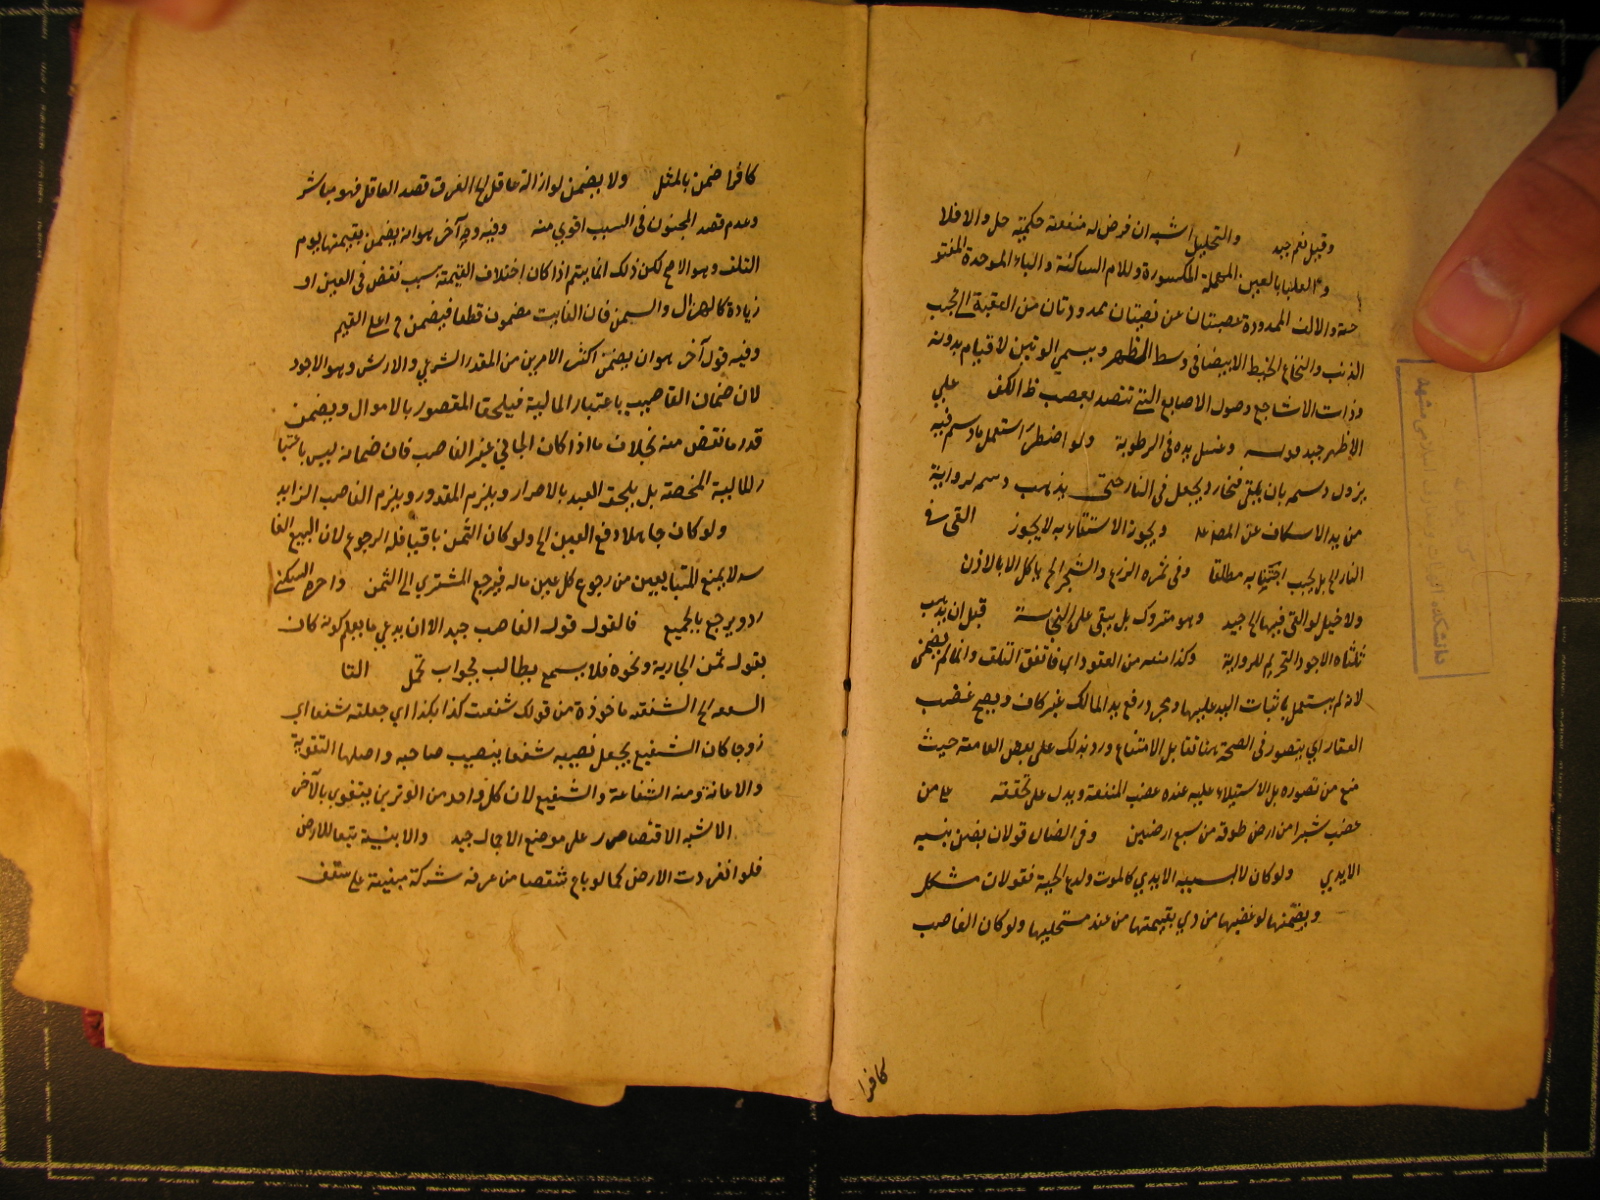 وقيل نعم جيد والتحليل اشبه ان فرض له منفعة حكمية حل والا فلا
والعلبا بالعين المهملة المكسورة واللام الساكنة والباء الموحدة المفتو
حة والالف الممدودة عصبتان ممدودتان من الى عجب
الذنب والنخاع الخيط الابيض في وسط الظهر ويسمى الوتين لا قيام بدونه
وذات الاشاجع وصول الاصابع التي تتصل بعصب ظ الكف على
الاظهر جيد قوله وغسل يده في الرطوبة ولو اضطر استعمل ما دسم فيه
يزول دسمه بان يلقى فخار ويجعل في النار حتى يذهب دسمه لرواية
من يد الاسكاف عن ويجوز الاستقاء به لا يجوز القى في
النار الخ بل يجب اجتنابه مطلقا وفي ثمرة الزرع والشجر الخ يأكل الا بالاذن
ولا خيل لو القى فيها الخ جيد وهو متروك بل يبقى على النجاسة قبل ان يذهب
ثلثاه الاجود التحريم للرواية وكذا منعه من العقود اي فاتفق التلف وانما لم يضمن
لانه لم يستعمل باثبات اليد عليها ومجرد رفع يد المالك غير كاف ويصح غصب
العقار اي يتصور في الصحة هنا تقابل الامتناع ورد بذلك على بعض العامة حيث
منع من تصوره بل الاستيلاء عليه عنده غصب المنفعة ويدل على تحققه ع من
غصب شبرا من ارض طوقه من سبع ارضين وفي الضمان قولان يضمن بنسبه
الايدي ولو كان لا لسببه الايدي كالموت ولدغ الحية فقولان مشكل
ويضمنها لو غصبها من ذمي بقيمتها من عند مستحليها ولو كان الغاصب
كافرا
كافرا ضمن بالمثل ولا يضمن لو ازالة عاقل الخ الفرق قصد العاقل فهو مباشر
وعدم قصد المجنون في السبب اقوى منه وفيه وجه آخر هو انه يضمن بقيمتها يوم
التلف وهو الاصح لكن ذلك انما يتم اذا كان اختلاف القيمة بسبب نقص في العين او
زيادة كالهزال والسمن فان الفايت مضمون قطعا فيضمن ح اعلى القيم
وفيه قول آخر هو ان يضمن اكثر الامرين من المقدر الشرعي والارش وهو الاجود
لان ضمان الغاصب باعتبار المالية فيلحق المقصور بالاموال ويضمن
قدر ما نقص منه بخلاف ما اذا كان الجاني غير الغاصب فان ضمانه ليس باعتبا
ر المالية المحضة بل يلحق العبد بالاحرار ويلزم المقدور ويلزم الغاصب الزايد
ولو كان جاهلا دفع العين الخ ولو كان الثمن باقيا فله الرجوع لان البيع الفا
سد لا يمنع المتبايعين من رجوع كل عين ماله فيرجع المشتري الى الثمن واجرة السكنى
رد ويرجع بالجميع فالقول قول الغاصب جيد الا ان يدعي ما يعلم كونه كان
بقوله ثمن الجارية ونحوه فلا يسمع يطالب بجواب محمل القا
الشفعة ماخوذة من قولك شفعت كذا بكذا اي جعلته شفعا اي
زوجا كان الشفيع يجعل نصيبه شفعا بنصيب صاحبه واصلها التقوية
والاعانة ومنه الشفاعة والشفيع لان كل واحد من الوترين يتقوى بالآخر
الاشبه الاقتصار على موضع الاجماع جيد والابنية تبعا للارض
فلو انفردت الارض كما لو باع شقصا من عرفه شركة مبنية على سقف